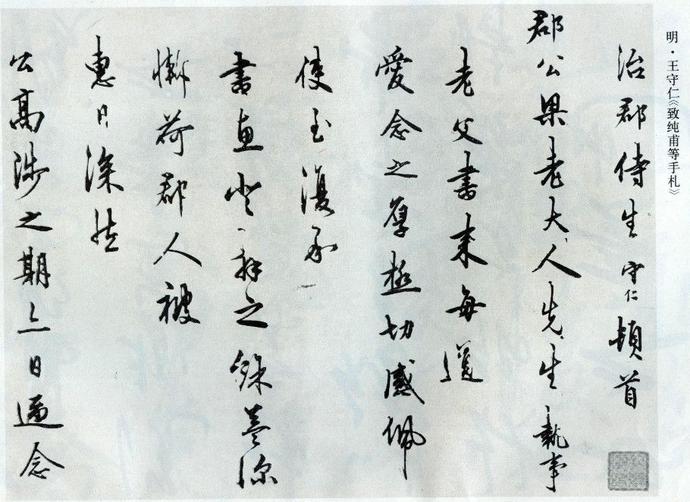 明·王守仁《致纯甫等手札》
治郡侍生守仁頓首
郡公梁老大人先生執事
老父書来每道
愛念之厚極切感佩
使至復承
書惠登拜之餘益深
慚荷郡人被
惠日深然
公高陟之期日逼念